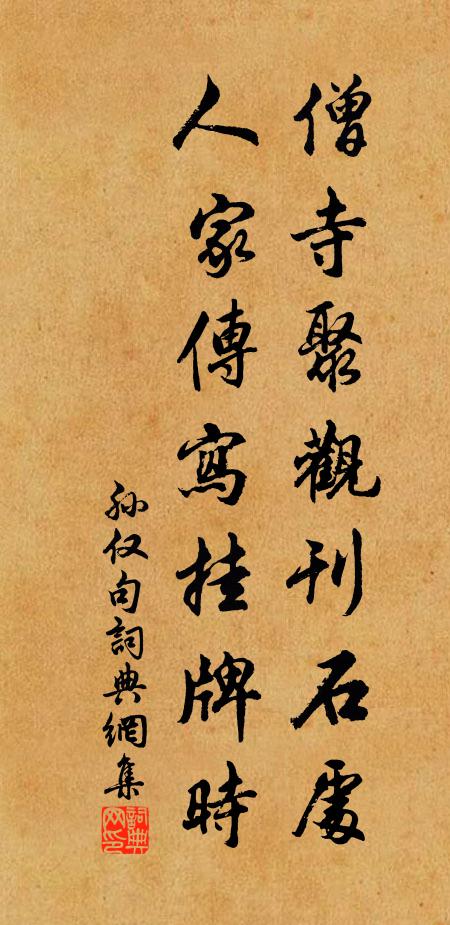 僧寺聚觀刊石處
人家傳寫挂牌時
孫仅句詞典網集
詞典网印